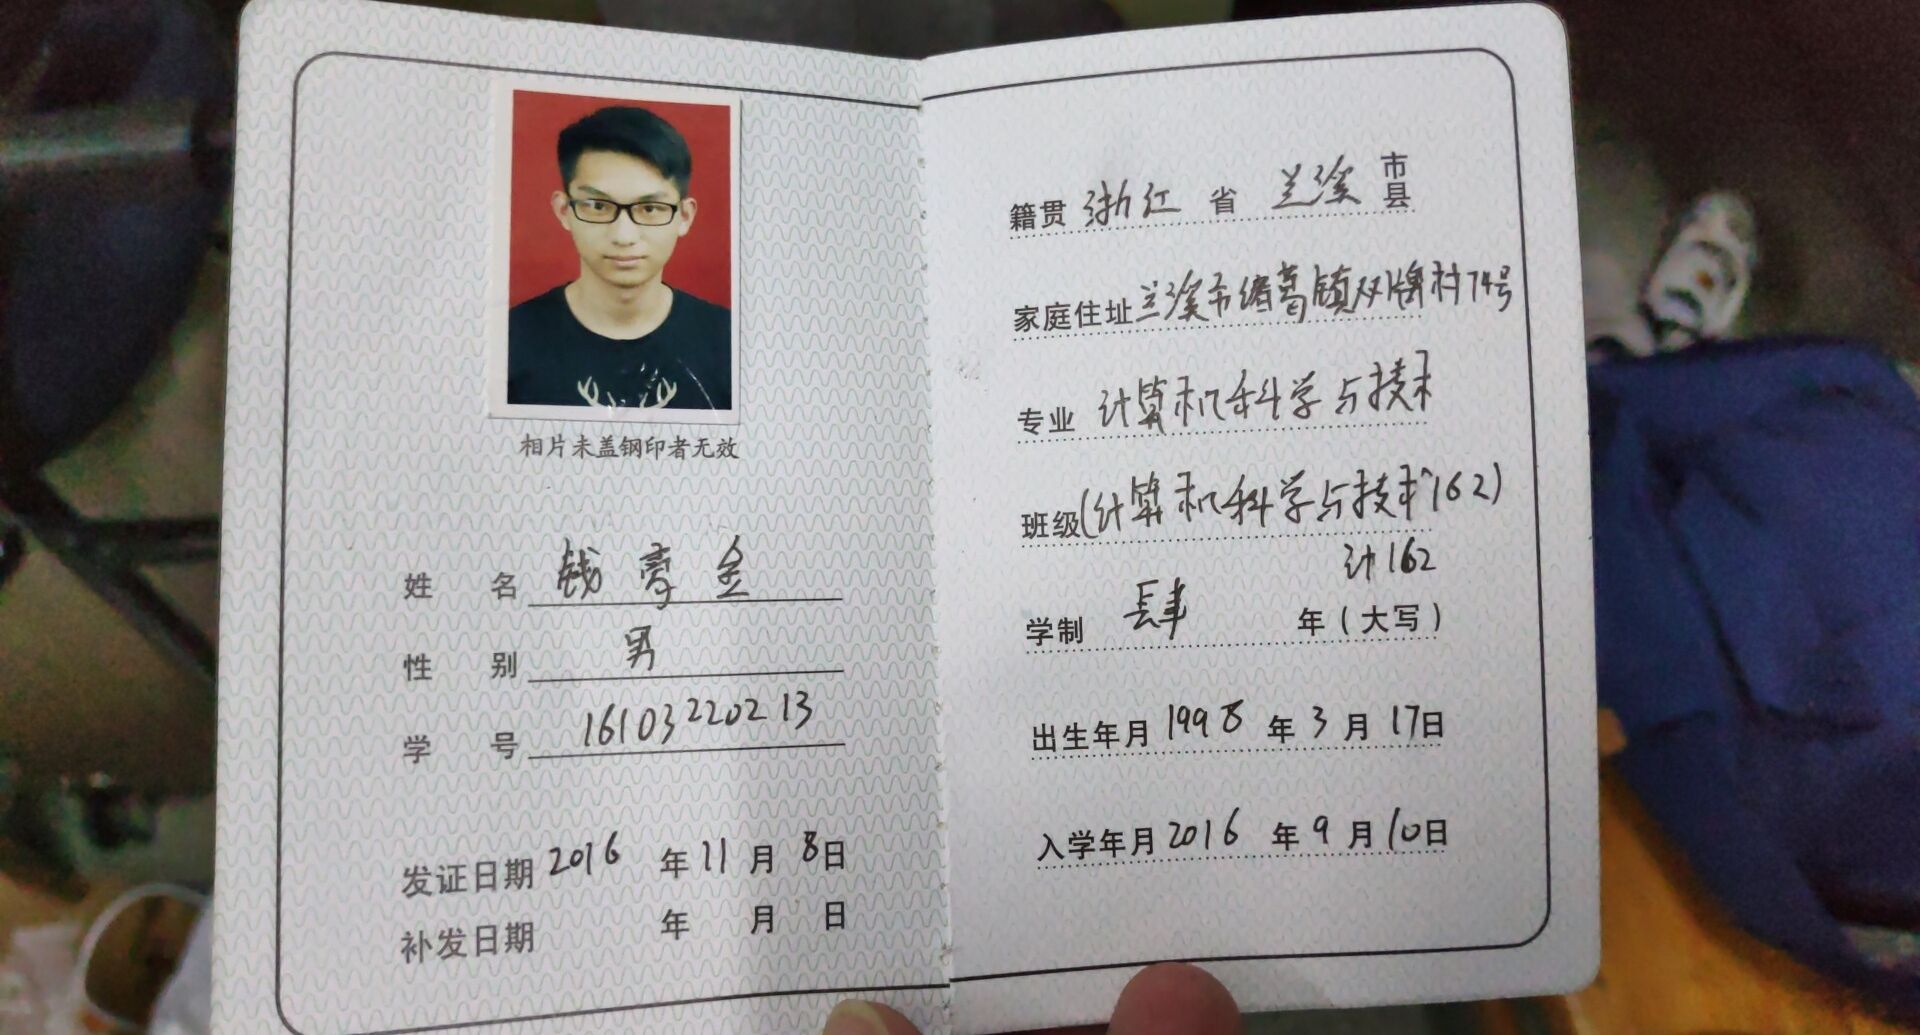 相片未盖钢印者无效
姓名 钱豪金
性别 男
学号 16103220213
发证日期 2016 年 11 月 8日
补发日期 年 月 日
籍贯 浙江 省 兰溪 市县
家庭住址 兰溪市诸葛镇双牌村74号
专业 计算机科学与技术
班级(计算机科学与技术162)
计162
学制 肆 年(大写)
出生年月 1998 年 3 月 17日
入学年月 2016 年 9 月 10日